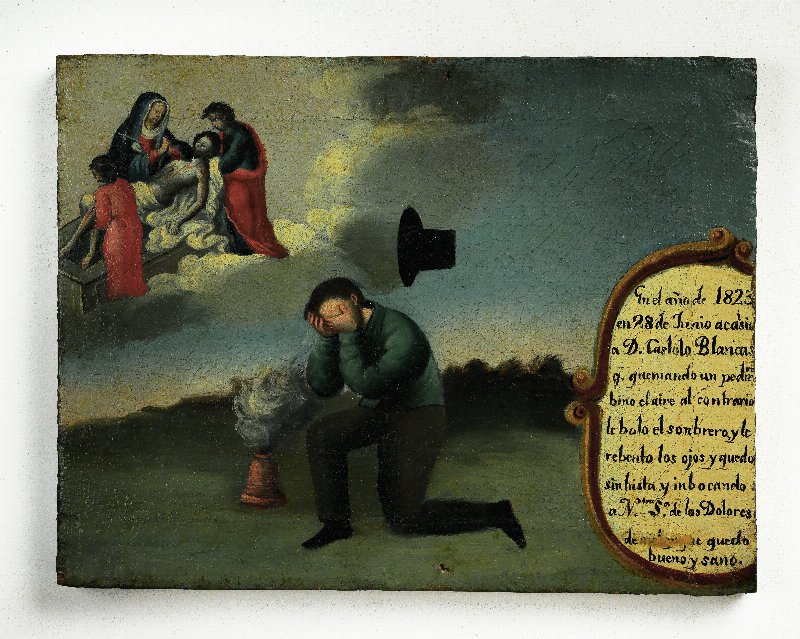 En el año de 1823
en 28 de Junio acasio
a D. Castolo Blancas
q. quemando un pedre
bino el aire al contrario
le bolo el sombrero, y le
rebento los ojos y quedo
sin bista y inbocando
a N.tra S.ª de los Dolores
quedo
bueno y sano.